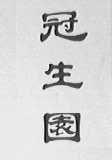 冠生園